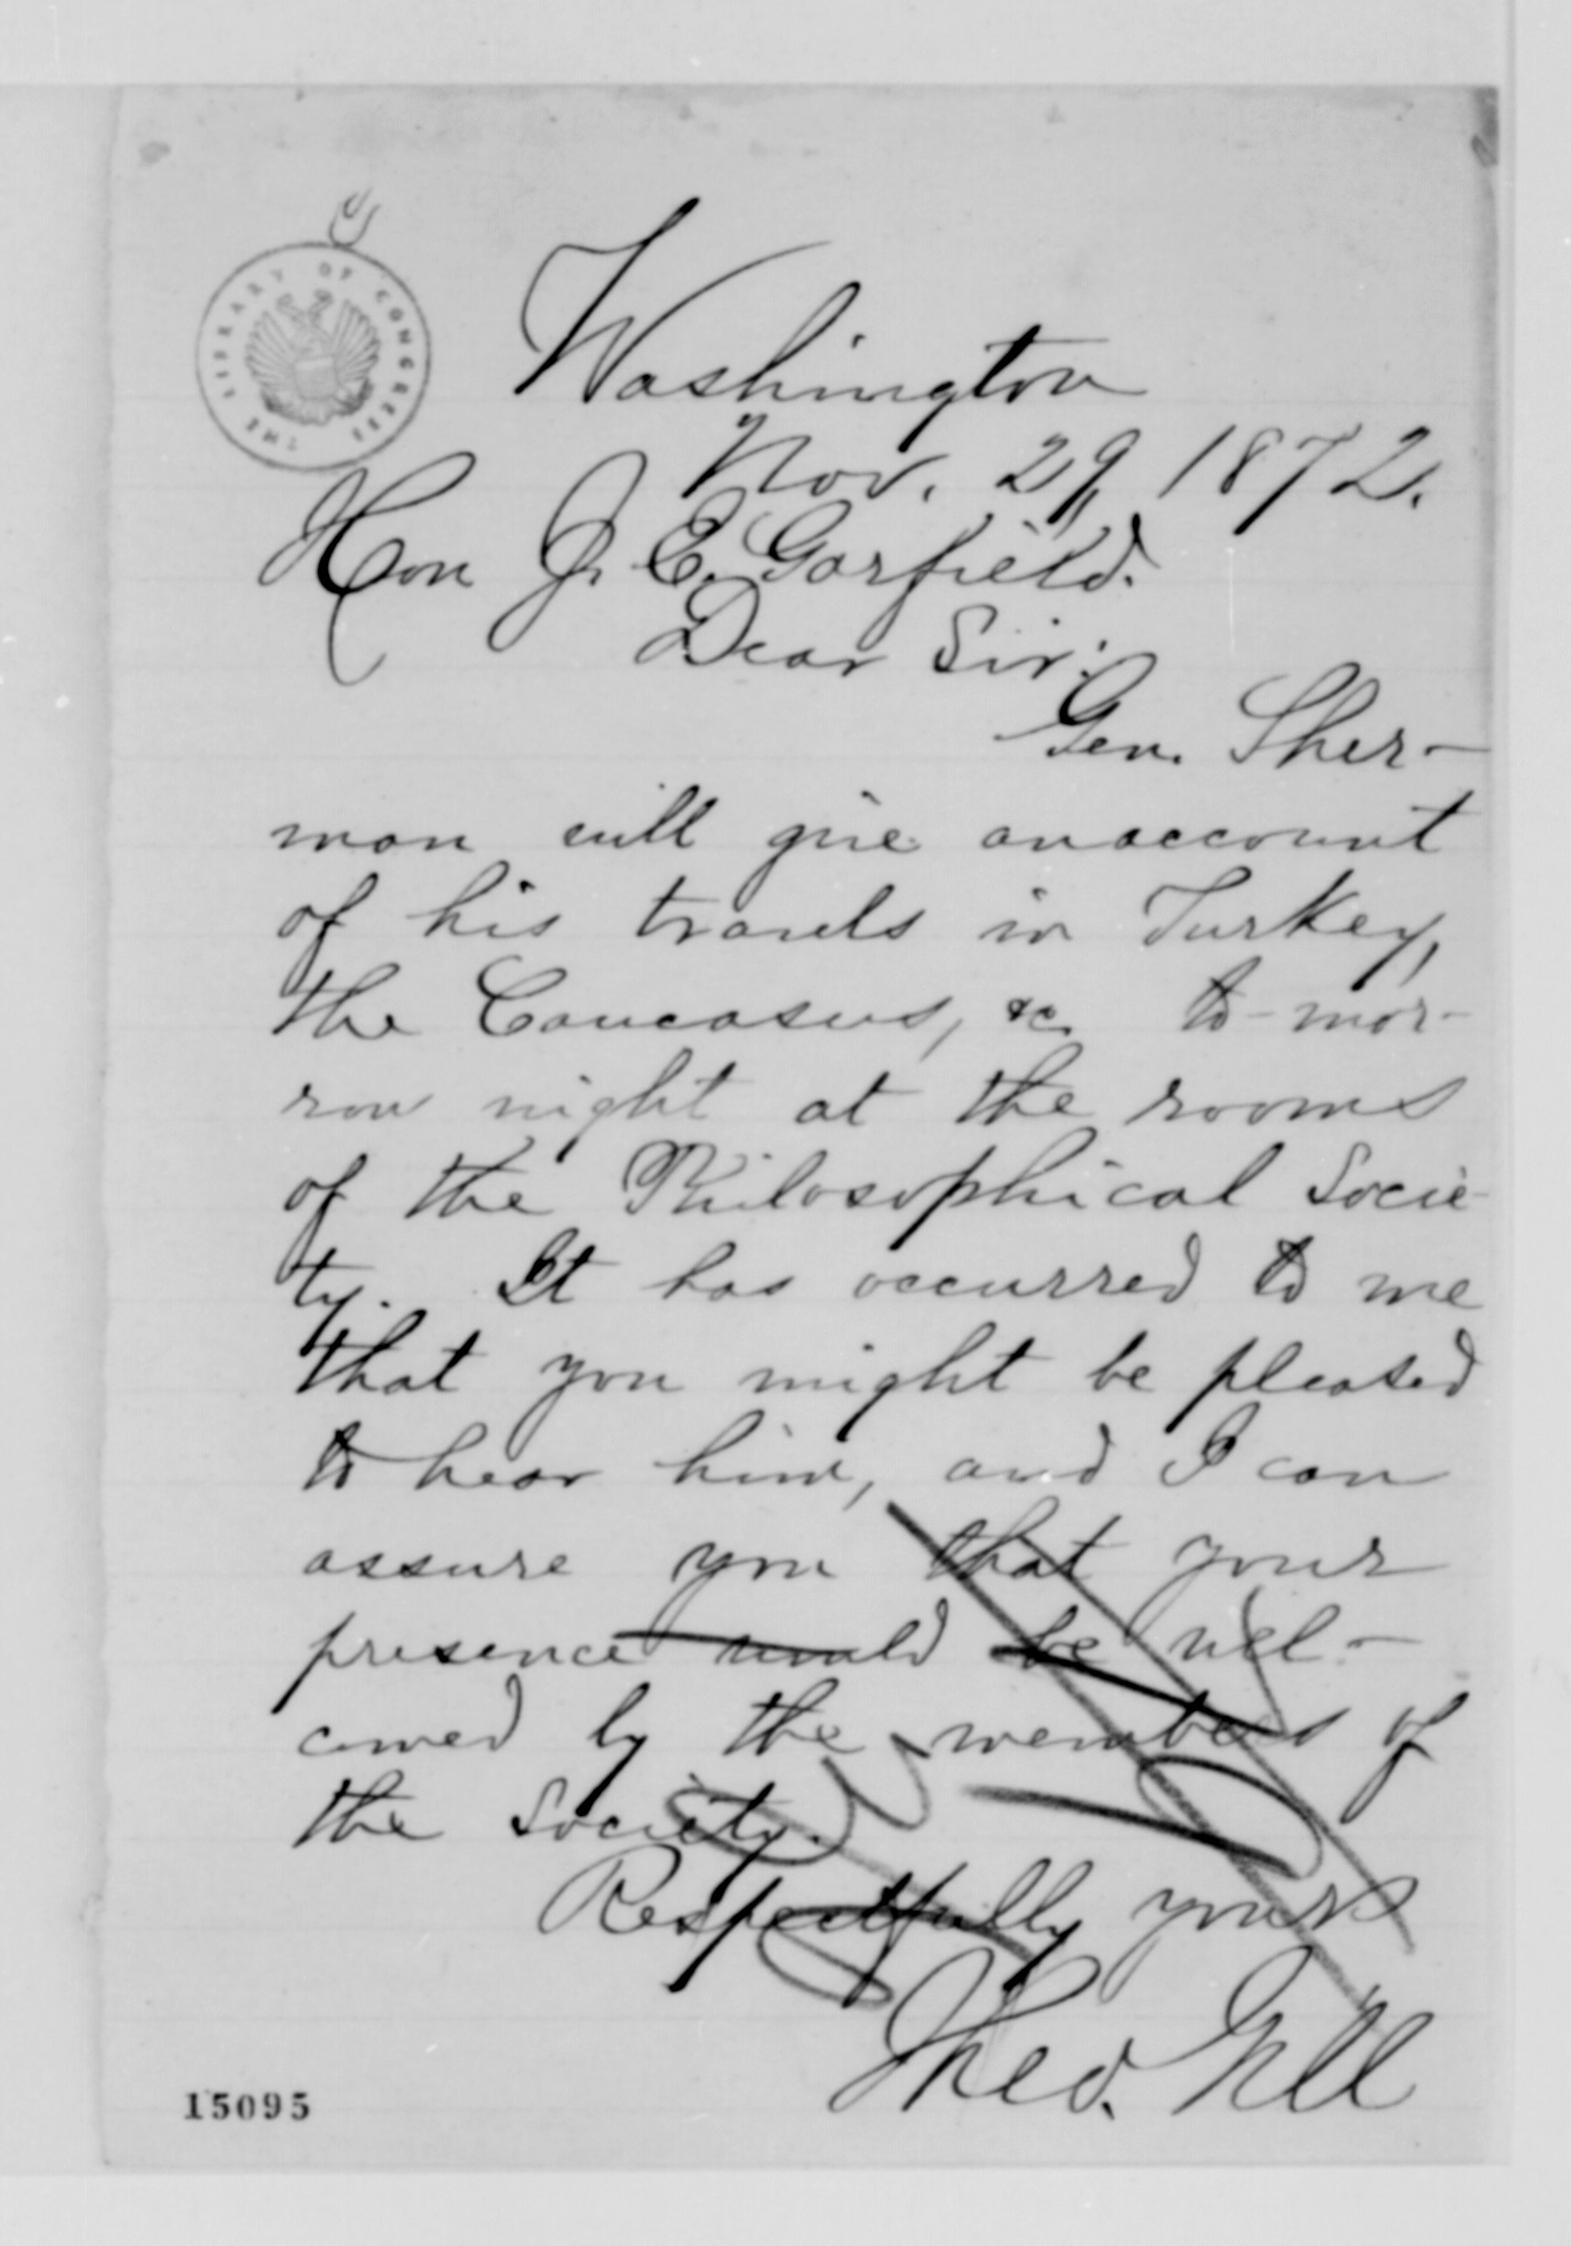 THE LIBRARY OF CONGRESS
Washington
Nov. 29, 1872.
Hon J. E. Garfield.
Dear Sir:
Gen. Sher-
man will give an account
of his travels in Turkey,
the Caucasus, &c to-mor-
row night at the rooms
of the Philosophical Socie-
ty. It has occurred to me
that you might be pleased
to hear him, and I can
assure you that your
presence would be wel-
comed by the members of
the Society.
Respectfully yours
Theo. Gill
15095